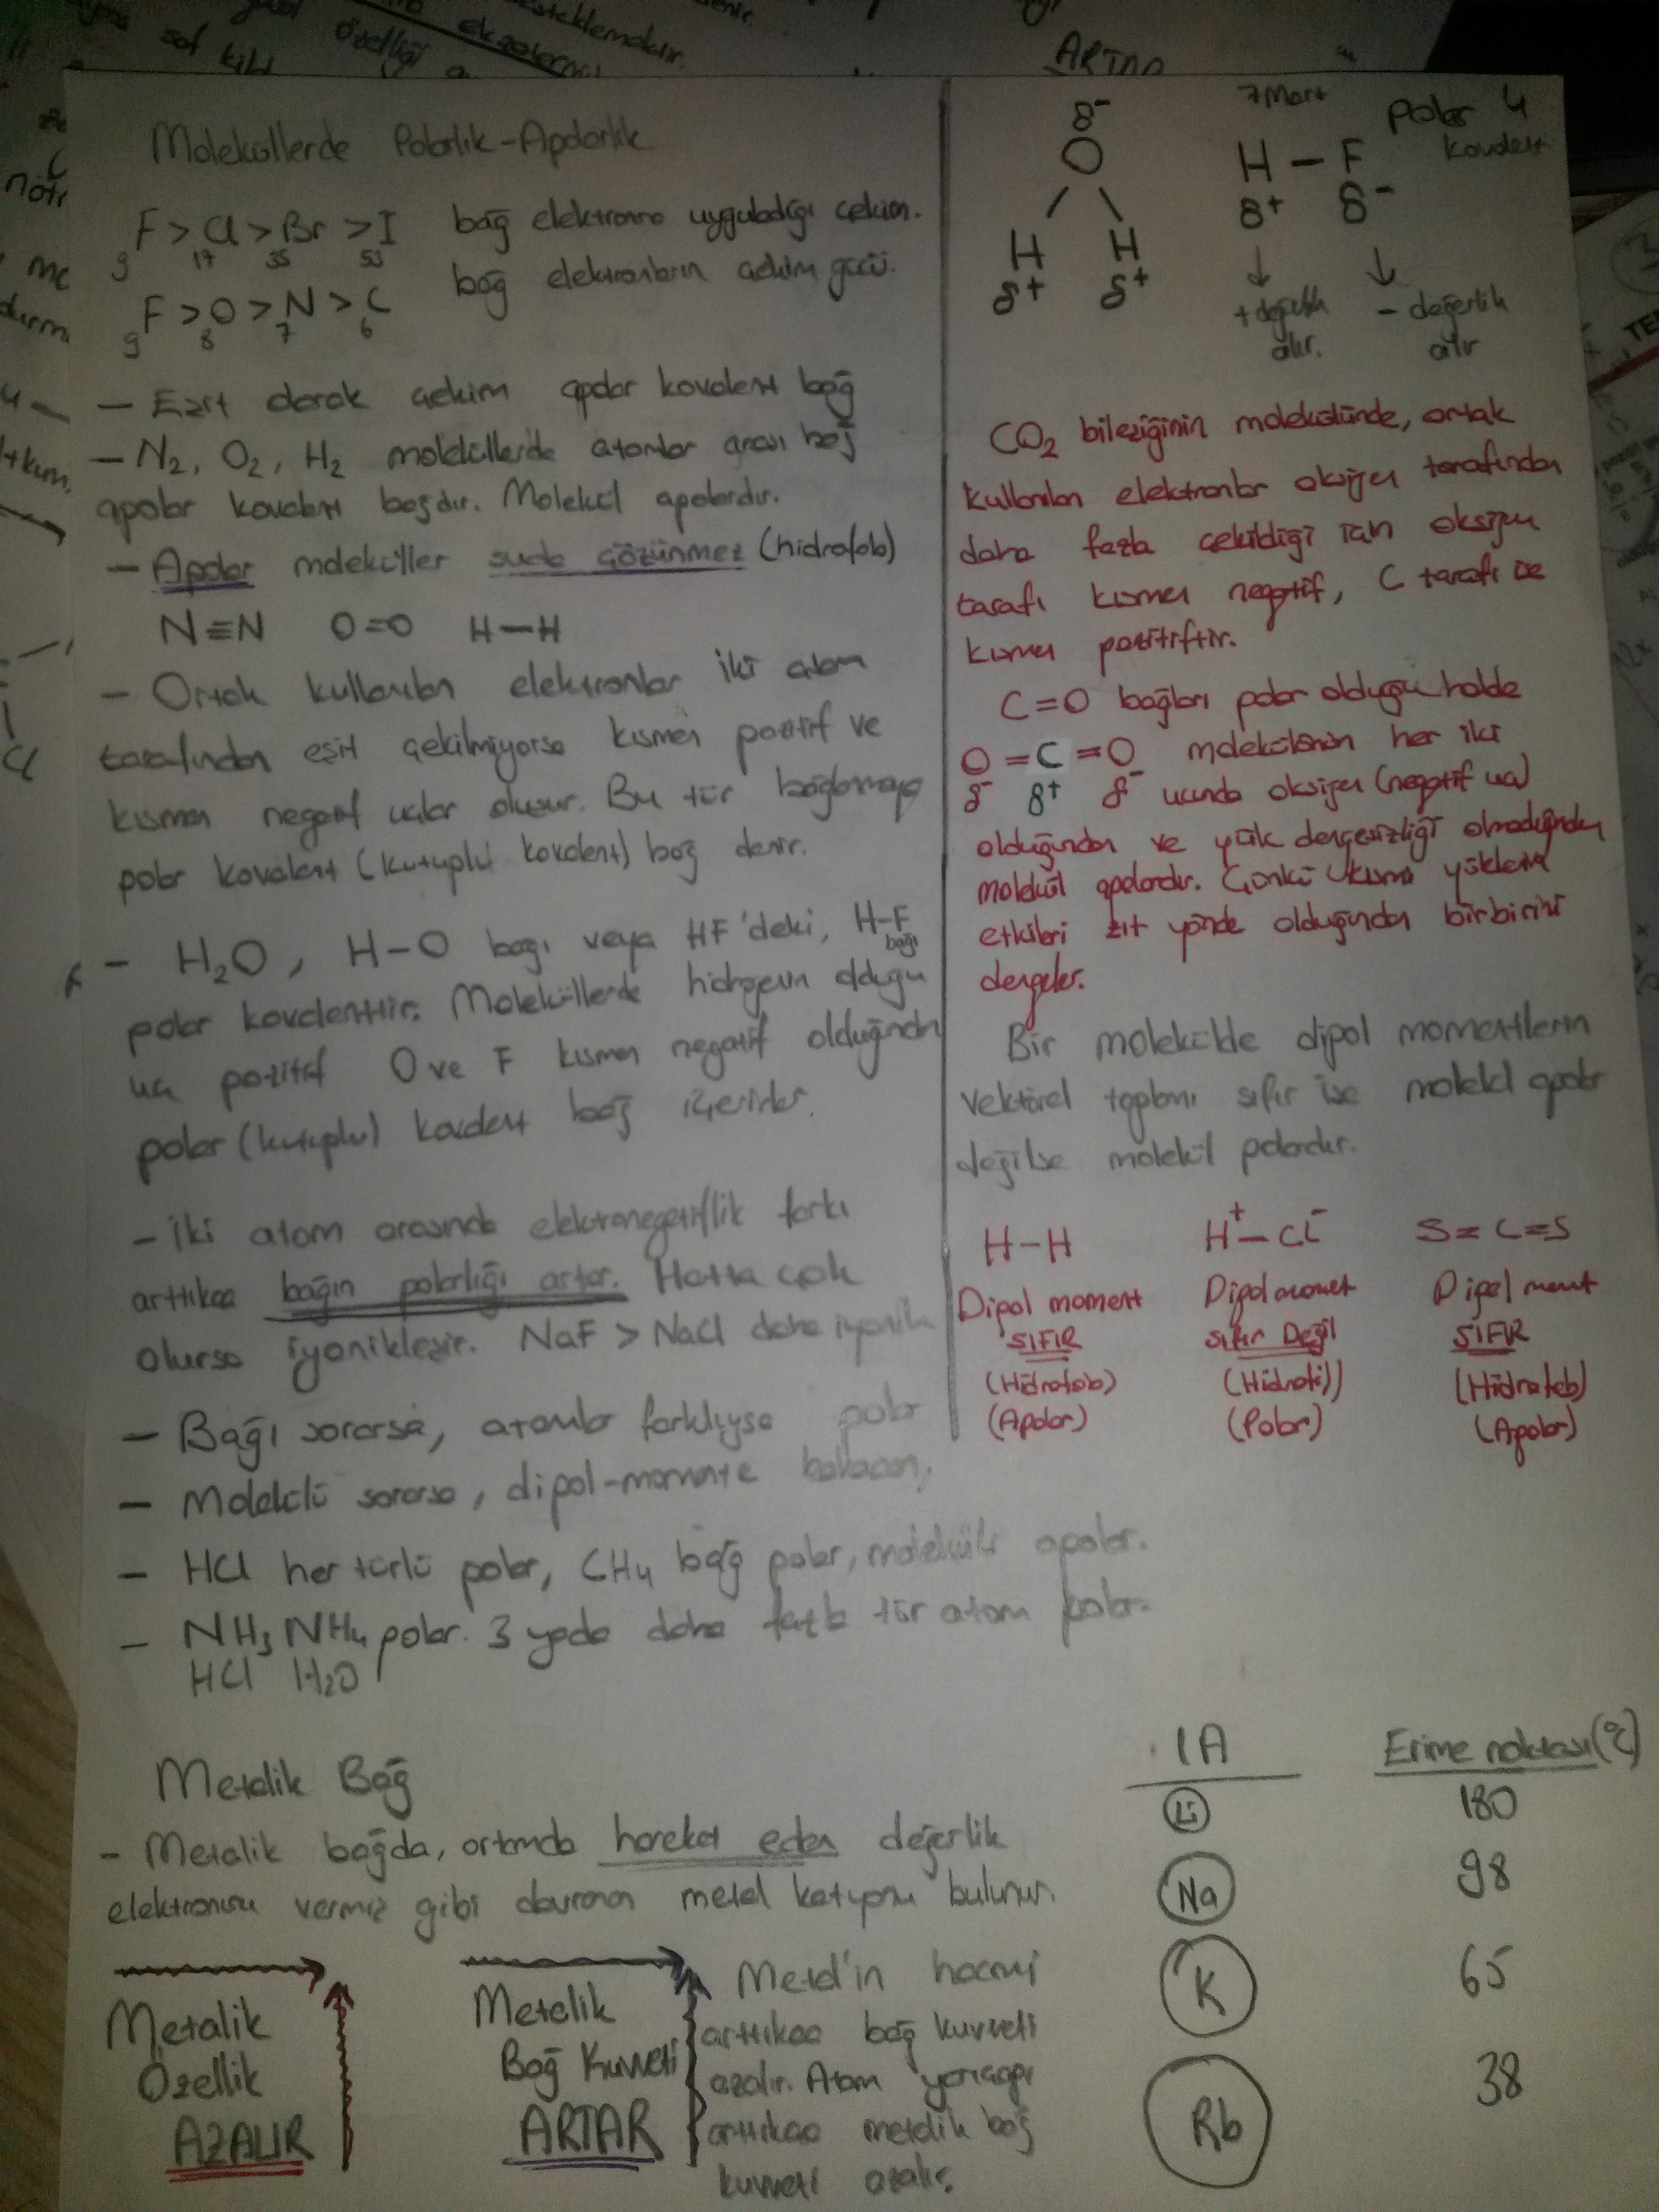 Moleküllerde Polarlık-Apolarlık
F > Cl > Br > I bağ elektronno uyguladığı çekim.
9 17 35 53
F > O > N > C bağ elektronların çekim gücü.
9 8 7 6
— Eşit olarak çekim apolar kovalent bağ
— N₂, O₂, H₂ moleküllerde atomlar arası bağ
apolar kovalent bağdır. Molekül apolardır.
— Apolar moleküller suda çözünmez (hidrofob)
N≡N O=O H—H
— Ortak kullanılan elektronlar iki atom
tarafından eşit çekilmiyorsa kısmen pozitif ve
kısmen negatif uçlar oluşur. Bu tür bağlanmaya
polar kovalent (kutuplu kovalent) bağ denir.
— H₂O, H-O bağı veya HF'deki, H-F
bağı
polar kovalenttir. Moleküllerde hidrojenin olduğu
uç pozitif O ve F kısmen negatif olduğundan
polar (kutuplu) kovalent bağ içerirler.
— İki atom arasında elektronegatiflik farkı
arttıkça bağın polarlığı artar. Hatta çok
olursa iyonikleşir. NaF > NaCl daha iyonik
— Bağı sorarsa, atomlar farklıysa polar
— Molekülü sorarsa, dipol-momente bakacan,
— HCl her türlü polar, CH₄ bağ polar, molekülü apolar.
— NH₃ NH₄ polar. 3 yada daha fazla tür atom polar.
HCl H₂O
7 Mart
4
δ⁻
O
H H
δ+ δ+
Polar
kovalent
H — F
δ+ δ⁻
+ değerlik alır.
- değerlik alır
CO₂ bileşiğinin molekülünde, ortak
kullanılan elektronlar oksijen tarafından
daha fazla çekildiği için oksijen
tarafı kısmen negatif, C tarafı ise
kısmen pozitiftir.
C=O bağları polar olduğu halde
O = C = O molekülünün her iki
δ⁻ δ+ δ⁻ ucunda oksijen (negatif uç)
olduğundan ve yük dengesizliği olmadığından
molekül apolardır. Çünkü kısmi yüklerin
etkileri zıt yönde olduğundan birbirini
dengeler.
Bir molekülde dipol momentlerin
vektörel toplamı sıfır ise molekül apolar
değilse molekül polardır.
H-H H⁺—Cl⁻ S=C=S
Dipol moment Dipol moment Dipol moment
SIFIR Sıfır Değil SIFIR
(Hidrofob) (Hidrofil) (Hidrofob)
(Apolar) (Polar) (Apolar)
Metalik Bağ
— Metalik bağda, ortamda hareket eden değerlik
elektronunu vermiş gibi davranan metal katyonu bulunur.
Metalik
Özellik
AZALIR
Metelik
Bağ Kuvveti
ARTAR
Metal'in hacmi
arttıkça bağ kuvveti
azalır. Atom yarıçapı
arttıkça metalik bağ
kuvveti azalır.
1A Erime noktası (°C)
Li 180
Na 98
K 65
Rb 38